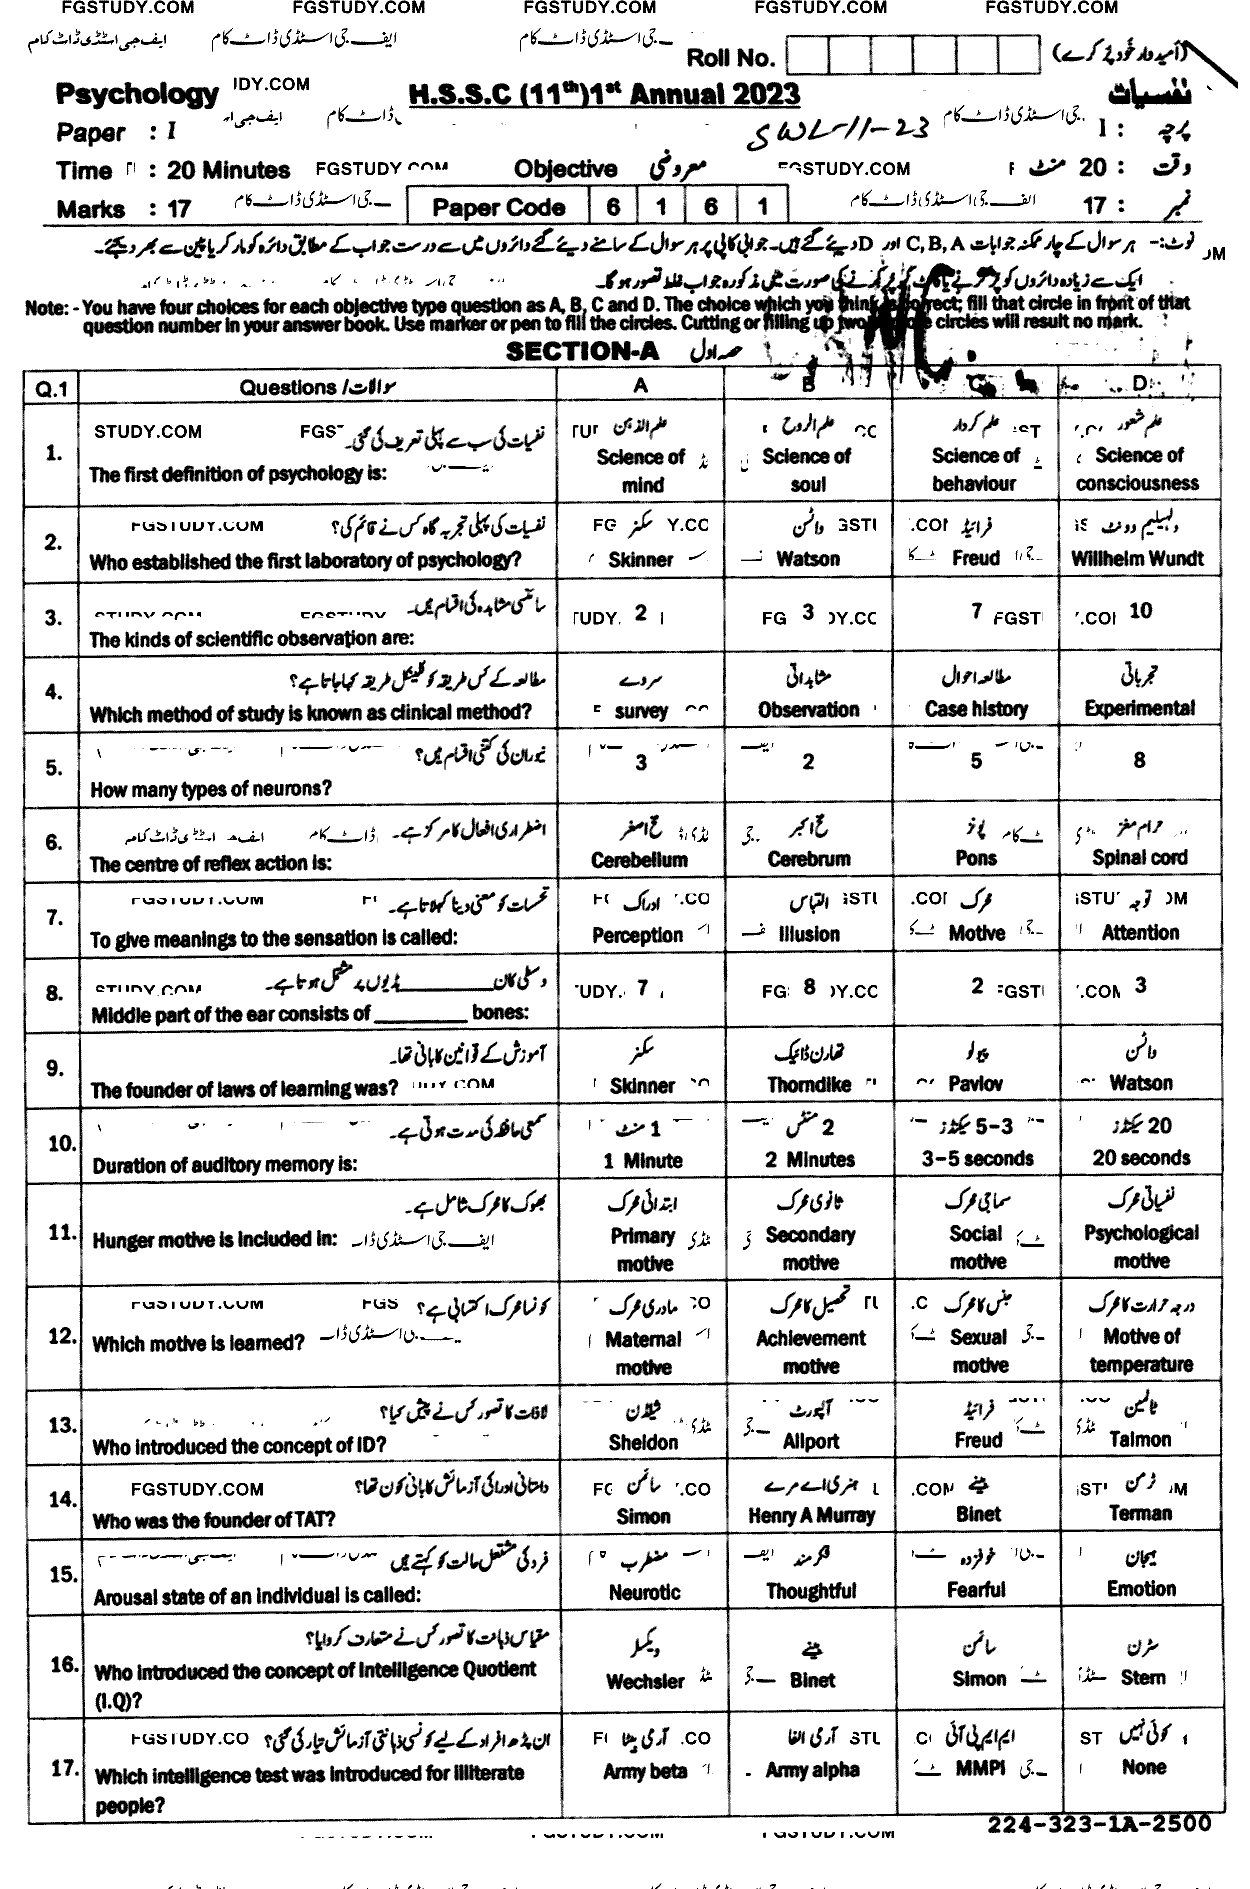 FGSTUDY.COM FGSTUDY.COM FGSTUDY.COM FGSTUDY.COM FGSTUDY.COM
ایف جی اسٹڈی ڈاٹ کام ایف جی اسٹڈی ڈاٹ کام جی اسٹڈی ڈاٹ کام
Roll No. (امیدوار خود پُر کرے)
Psychology H.S.S.C (11th) 1st Annual 2023 نفسیات
Paper : I SWL-11-23 پرچہ : I
Time : 20 Minutes FGSTUDY.COM Objective معروضی وقت : 20 منٹ
Marks : 17 Paper Code 6 1 6 1 نمبر : 17
نوٹ:- ہر سوال کے چار ممکنہ جوابات C, B, A اور D دیئے گئے ہیں۔ جوابی کاپی پر ہر سوال کے سامنے دیئے گئے دائروں میں سے درست جواب کے مطابق دائرہ کو مارکر یا پین سے بھر دیجئے۔
ایک سے زیادہ دائروں کو پُر کرنے یا کاٹ کر پُر کرنے کی صورت میں مذکورہ جواب غلط تصور ہوگا۔
Note: - You have four choices for each objective type question as A, B, C and D. The choice which you think is correct; fill that circle in front of that
question number in your answer book. Use marker or pen to fill the circles. Cutting or filling up two circles will result no mark.
SECTION-A حصہ اول
Q.1 Questions / سوالات A B C D
1. نفسیات کی سب سے پہلی تعریف کی گئی۔ علم الذہن علم الروح علم کردار علم شعور
The first definition of psychology is: Science of mind Science of soul Science of behaviour Science of consciousness
2. نفسیات کی پہلی تجربہ گاہ کس نے قائم کی؟ سکنر واٹسن فرائیڈ ولہیلم وونٹ
Who established the first laboratory of psychology? Skinner Watson Freud Willhelm Wundt
3. سائنسی مشاہدہ کی اقسام ہیں۔ 2 3 7 10
The kinds of scientific observation are:
4. مطالعہ کے کس طریقہ کو کلینیکل طریقہ کہا جاتا ہے؟ سروے مشاہداتی مطالعہ احوال تجرباتی
Which method of study is known as clinical method? survey Observation Case history Experimental
5. نیوران کی کتنی اقسام ہیں؟ 3 2 5 8
How many types of neurons?
6. اضطراری افعال کا مرکز ہے۔ مخ اصغر مخ اکبر پونز حرام مغز
The centre of reflex action is: Cerebellum Cerebrum Pons Spinal cord
7. تحسسات کو معنی دینا کہلاتا ہے۔ ادراک التباس محرک توجہ
To give meanings to the sensation is called: Perception Illusion Motive Attention
8. وسطی کان ________ ہڈیوں پر مشتمل ہوتا ہے۔ 7 8 2 3
Middle part of the ear consists of ________ bones:
9. آموزش کے قوانین کا بانی تھا۔ سکنر تھارن ڈائیک پیولو واٹسن
The founder of laws of learning was? Skinner Thorndike Pavlov Watson
10. سمعی حافظہ کی مدت ہوتی ہے۔ 1 منٹ 2 منٹس 3-5 سیکنڈز 20 سیکنڈز
Duration of auditory memory is: 1 Minute 2 Minutes 3-5 seconds 20 seconds
11. بھوک کا محرک شامل ہے۔ ابتدائی محرک ثانوی محرک سماجی محرک نفسیاتی محرک
Hunger motive is included in: Primary motive Secondary motive Social motive Psychological motive
12. کونسا محرک اکتسابی ہے؟ مادری محرک تحصیل کا محرک جنس کا محرک درجہ حرارت کا محرک
Which motive is learned? Maternal motive Achievement motive Sexual motive Motive of temperature
13. لاذات کا تصور کس نے پیش کیا؟ شیلڈن آلپورٹ فرائیڈ ٹالمین
Who introduced the concept of ID? Sheldon Allport Freud Talmon
14. داستانی ادراکی آزمائش کا بانی کون تھا؟ سائمن ہنری اے مرے بینے ٹرمن
Who was the founder of TAT? Simon Henry A Murray Binet Terman
15. فرد کی مشتعل حالت کو کہتے ہیں مضطرب فکرمند خوفزدہ ہیجان
Arousal state of an individual is called: Neurotic Thoughtful Fearful Emotion
16. مقیاس ذہانت کا تصور کس نے متعارف کروایا؟ ویکسلر بینے سائمن سٹرن
Who introduced the concept of Intelligence Quotient (I.Q)? Wechsler Binet Simon Stern
17. ان پڑھ افراد کے لیے کونسی ذہانتی آزمائش تیار کی گئی؟ آرمی بیٹا آرمی الفا ایم ایم پی آئی کوئی نہیں
Which intelligence test was introduced for illiterate people? Army beta Army alpha MMPI None
224-323-1A-2500
FGSTUDY.COM FGSTUDY.COM FGSTUDY.COM